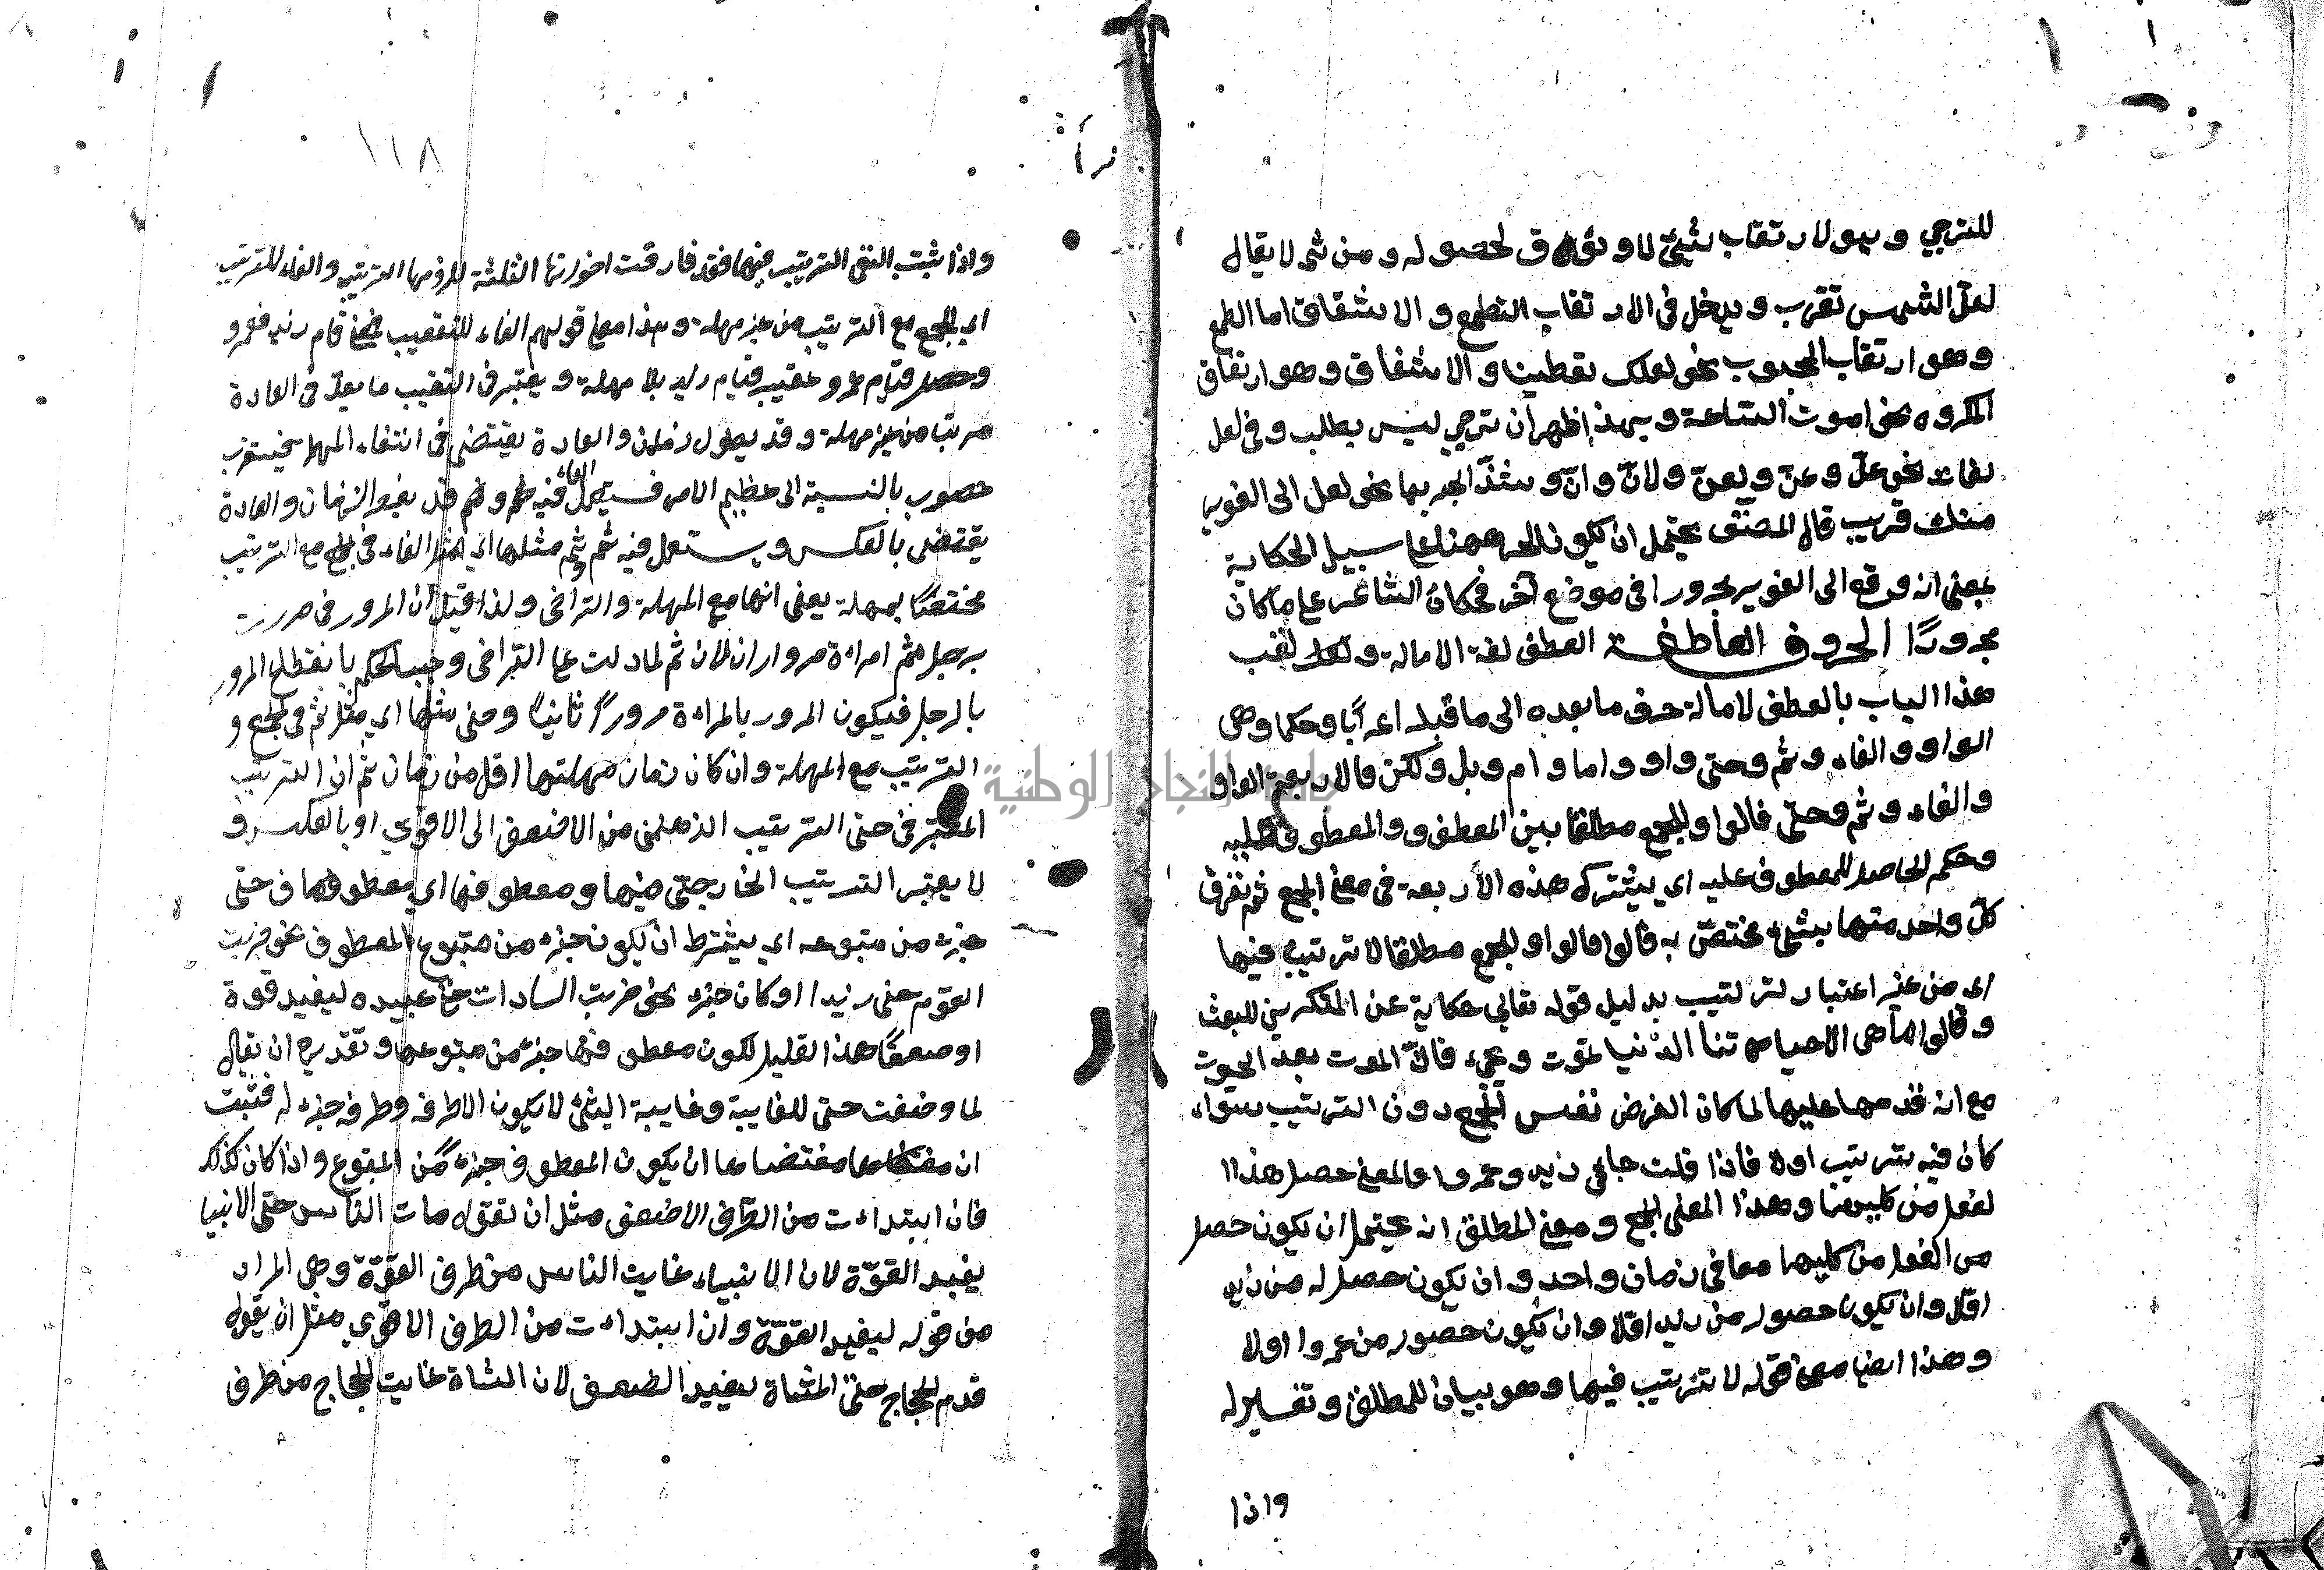 للترجي وهو لارتقاب شيئ لا وثوق لحصوله ومن ثم لا يقال
لعل الشمس تقرب ويدخل فى الارتقاب التطمع والاشقاق اما الطمع
وهو ارتقاب المحبوب نحو لعلك تعطينا والاشفاق وهو ارتقاق
المكروه نحو اموت الساعة وبهذا ظهر ان ترجي ليس بطلب وفى لعل
لغات نحو علّ وعنّ ولعنّ ولانّ وانّ وشذّ الجر بها نحو لعل الى الغوير
منك قريب قال المصنّف يحتمل ان يكون الجر ههنا على سبيل الحكاية
بمعنى انه وقع الى الغوير مجرورا فى موضع آخر فحكاه الشاعر على ما كان
مجرورًا الحروف العاطفة العطف لغة الامالة ولعل لقب
هذا الباب بالعطف لامالة حرف ما بعده الى ما قبله اعرابا وحكما وهى
الواو والفاء وثم وحتى واو واما وام وبل ولكن فالاربعة الواو
والفاء وثم وحتى فالواو للجمع مطلقا بين المعطوف والمعطوف عليه
وحكم الحاصل للمعطوف عليه اى يشترك هذه الاربعة فى معنى الجمع ثم تفرق
كل واحد منها بشئ مختصّ به فالواو للجمع مطلقا لا ترتيب فيها
اى من غير اعتبار لترتيب بدليل قوله تعالى حكاية عن المنكرين للبعث
وقالوا ما هى الا حياتنا الدنيا نموت ونحيى فانّ الموت بعد الحيوت
مع انه قدمها عليها لما كان الغرض نفس الجمع دون الترتيب سواء
كان فيه ترتيب اولا فاذا قلت جاءنى زيد وعمروا فالمعنى حصل هذا ا
لفعل من كليهما وهذا المعنى الجمع ومعنى المطلق انه يحتمل ان يكون حصل
من الفعل من كليهما معا فى زمان واحد وان يكون حصل له من زيد
اولا وان يكون حصوله من زيد اولا وان يكون حصوره من عمروا اولا
وهذا ايضا معنى قوله لا ترتيب فيها وهو بيان للمطلق وتفسير له
واذا
١١٨
واذا ثبت النفى الترتيب فيها فقد فارقت اخواتها الثلثة للزومها الترتيب والفاء للترتيب
اى للجمع مع الترتيب من غير مهلة وهذا معنى قولهم الفاء للتعقيب فمعنى قام زيد فعمرو
وحصل قيام عمرو عقيب قيام زيد بلا مهلة ويعتبر فى التعقيب ما يعدّ فى العادة
مرتبا من غير مهلة وقد يطول زمان والعادة يقتضى فى انتفاء المهلة
حصوب بالنسبة الى عظيم الامر فيستعمل الفاء فيه وقد الزمان والعادة
يقتضى بالعكس ويستعمل فيه ثم وثم مثلها اى مثل الفاء فى الجمع مع الترتيب
مختصًا بمهلة يعنى انها مع المهلة والتراخى ولذا قيل ان المرور فى مررت
برجل ثم امراءة مروران لان ثم لما دلت على التراخى وجب الحكم بانقطاع المرور
بالرجل فيكون المرور بالمراءة مرورًا ثانيًا وحتى مثلها اى مثل ثم فى الجمع و
الترتيب مع المهلة وان كان زمان مهلتها اقل من زمان ثم ان الترتيب
المعتبر فى حتى الترتيب الذهنى من الاضعف الى الاقوى او بالعكس و
لا يعتبر الترتيب الخارجى فيها ومعطوفها اى معطوف حتى
جزء من متبوعه اى يشترط ان يكون جزء من متبوع المعطوف نحو ضربت
القوم حتى زيدا او كان جزء نحو ضربت السادات حتى عبيده ليفيد قوة
او ضعفًا هذا القليل لكون معطوفها جزء من متبوعها وتقديره ان يقال
لما وضعت حتى للغاية وغاية الشئ لا يكون الا طرفه وطرفه جزء له فثبت
ان مقتضاها ان يكون المعطوف جزءً من المتبوع واذا كان كذلك
فان ابتداءت من الطرف الاضعف مثل ان تقول مات الناس حتى الانبيا
يفيد القوّة لان الانبياء غايت الناس من طرف القوّة وهى المراد
من قوله ليفيد القوّة وان ابتداءت من الطرف الاقوى مثل ان يقول
قدم الحجاج حتى المشاة ليفيد الضعف لان المشاة غايت الحجاج من طرف
جامعة النجاح الوطنية